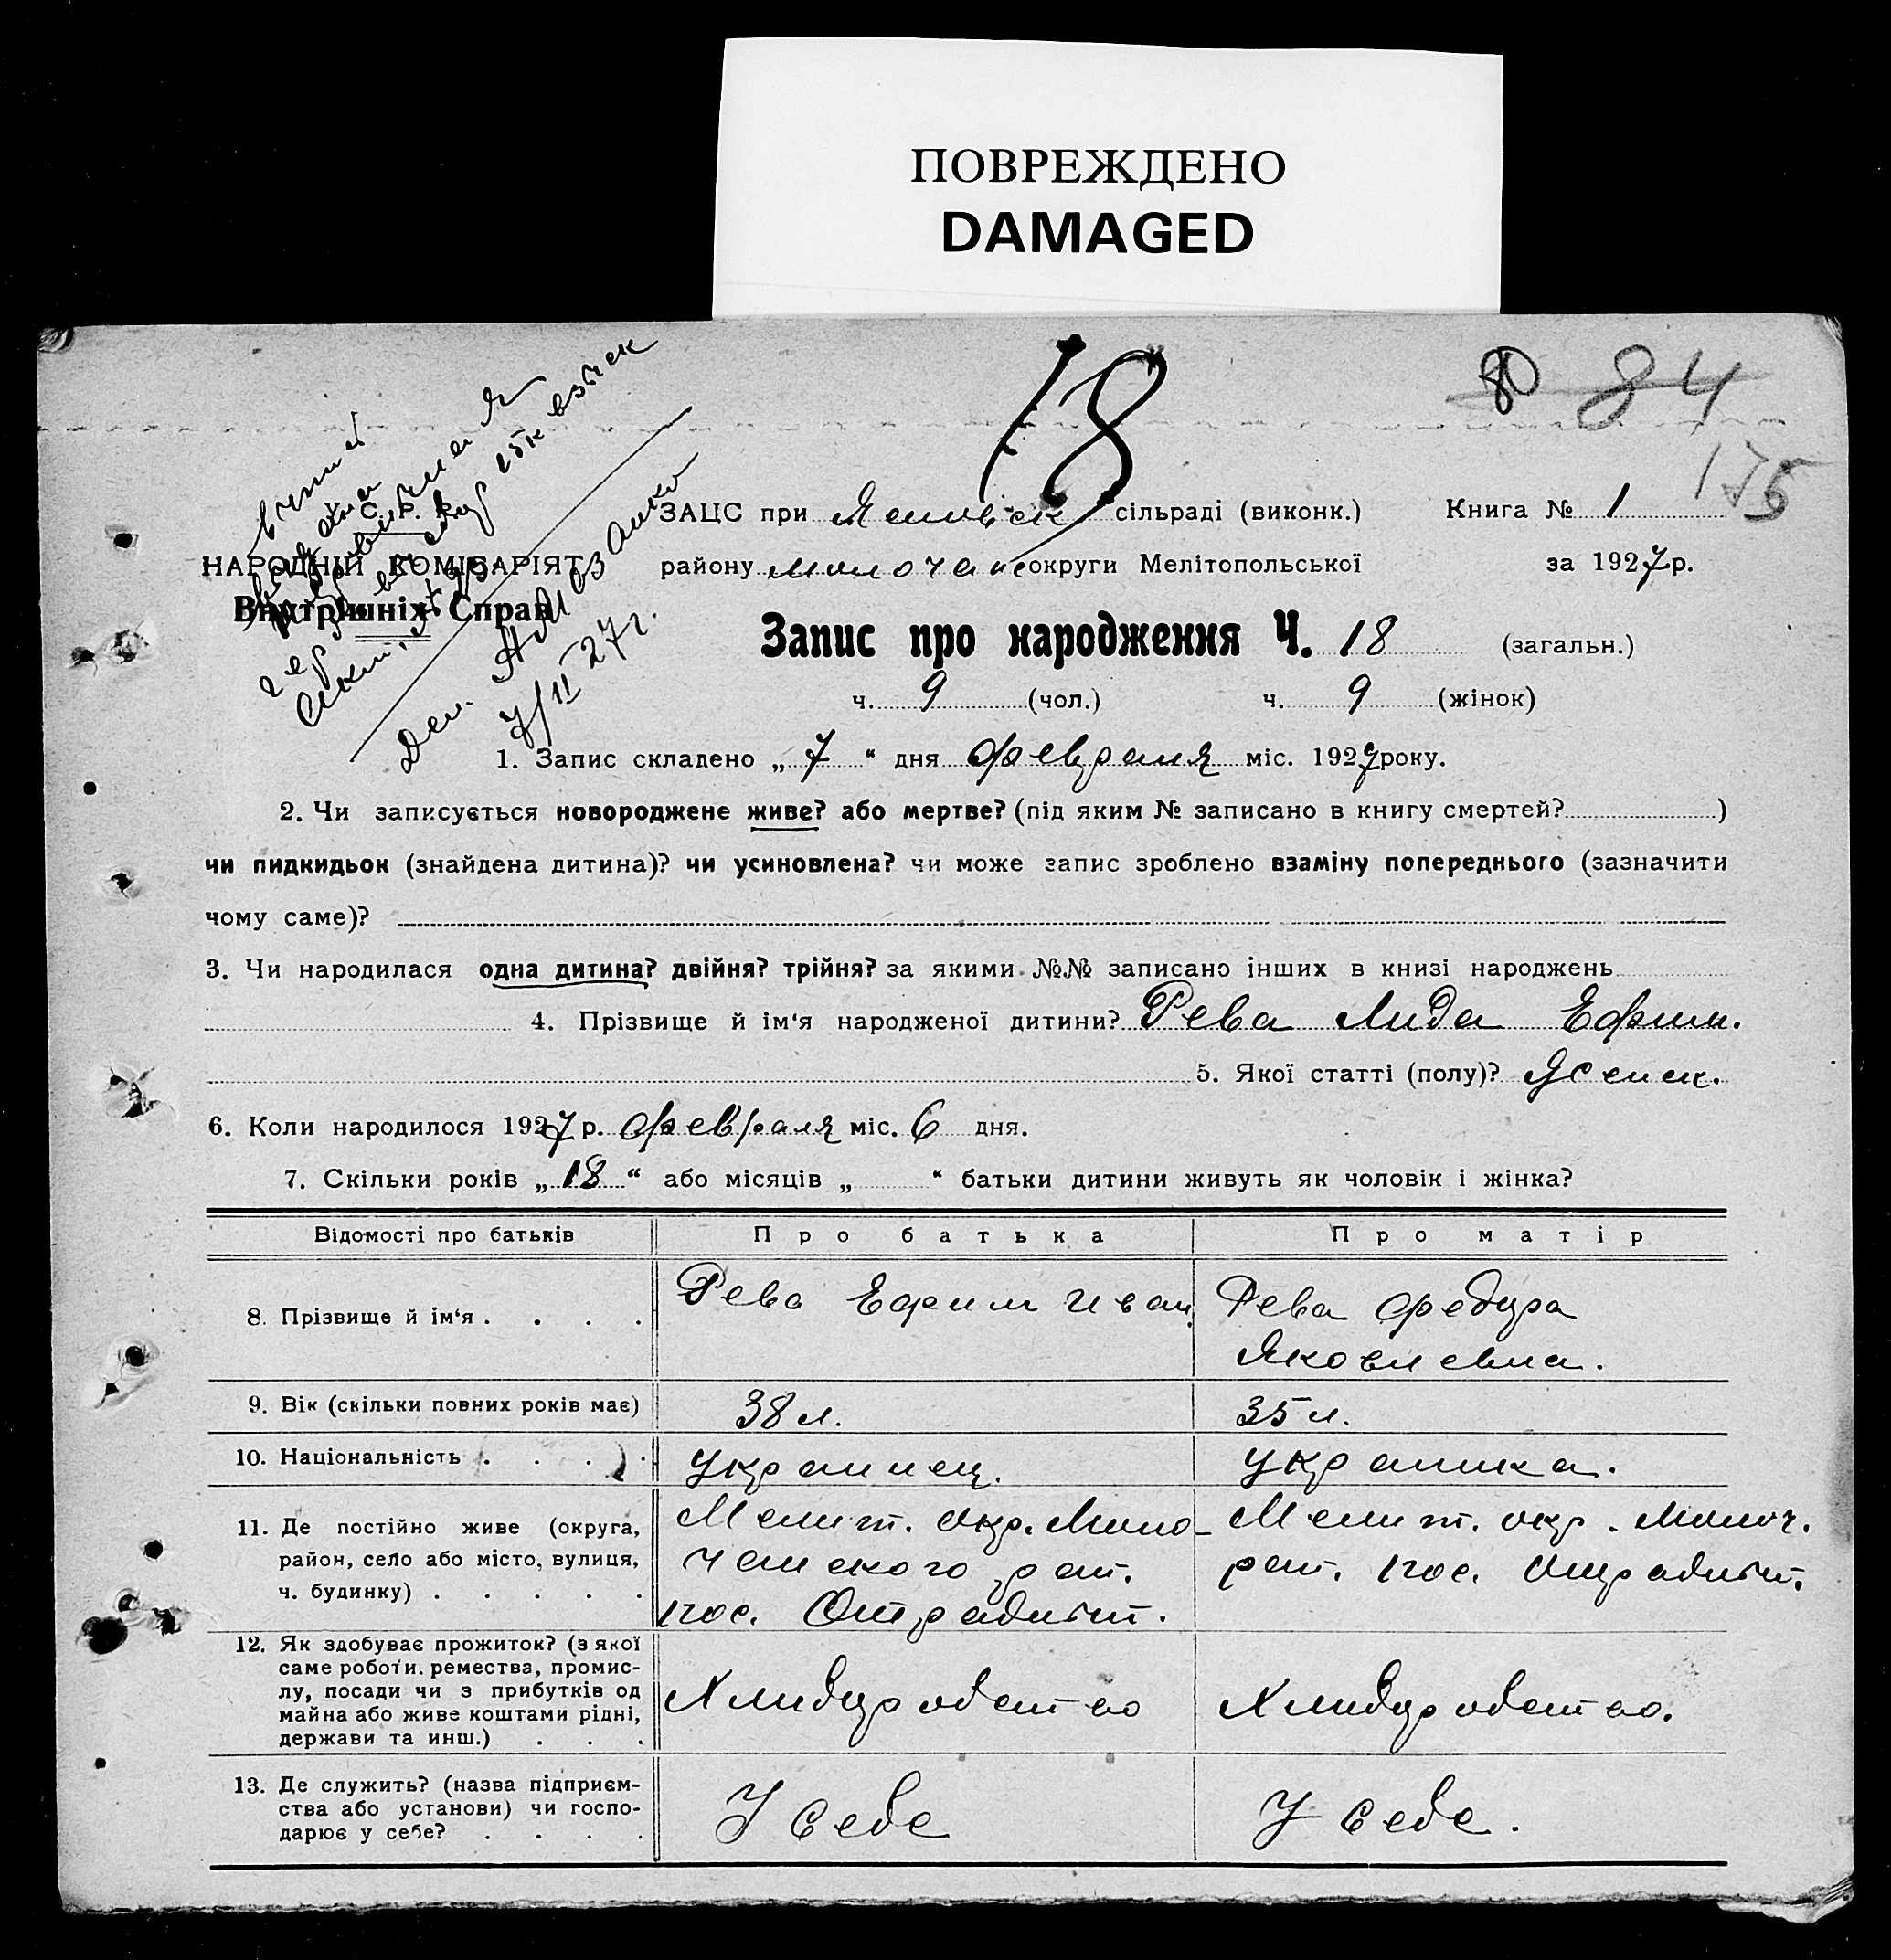 ПОВРЕЖДЕНО
DAMAGED
18
80 84
175
У. С. Р. Р.
НАРОДНІЙ КОМІСАРІЯТ
Внутрішніх Справ
7/II 27 г.
ЗАЦС при сільраді (виконк.) Книга № 1
району Молочанс округи Мелітопольської за 1927 р.
Запис про народження Ч. 18 (загальн.)
ч. 9 (чол.) ч. 9 (жінок)
1. Запис складено „ 7 “ дня февраля міс. 1927 року.
2. Чи записується новороджене живе? або мертве? (під яким № записано в книгу смертей? )
чи пидкидьок (знайдена дитина)? чи усиновлена? чи може запис зроблено взаміну попереднього (зазначити
чому саме)?
3. Чи народилася одна дитина? двійня? трійня? за якими №№ записано інших в книзі народжень
4. Прізвище й ім‘я народженої дитини? Рева Лида Ефим.
5. Якої статті (полу)? Женск.
6. Коли народилося 1927 р. февраля міс. 6 дня.
7. Скільки років „ 18 “ або місяців „ “ батьки дитини живуть як чоловік і жінка?
Відомості про батьків Про батька Про матір
8. Прізвище й ім‘я . . . . Рева Ефим Иван. Рева Федура
Яковлевна.
9. Вік (скільки повних років має) 38 л. 35 л.
10. Національність . . . . Украинец. Украинка.
11. Де постійно живе (округа, Мелит. Окр. Моло- Мелит. окр. Молоч.
район, село або місто, вулиця, чанского рай. рай. пос. Отрадност.
ч. будинку) . . . . . пос. Отрадност.
12. Як здобуває прожиток? (з якої
саме роботи. ремества, промис-
лу, посади чи з прибутків од Хлибуробство Хлибуробство.
майна або живе коштами рідні,
держави та инш.) . . .
13. Де служить? (назва підприєм-
ства або установи) чи госпо- У себе У себе.
дарює у себе? . . . .